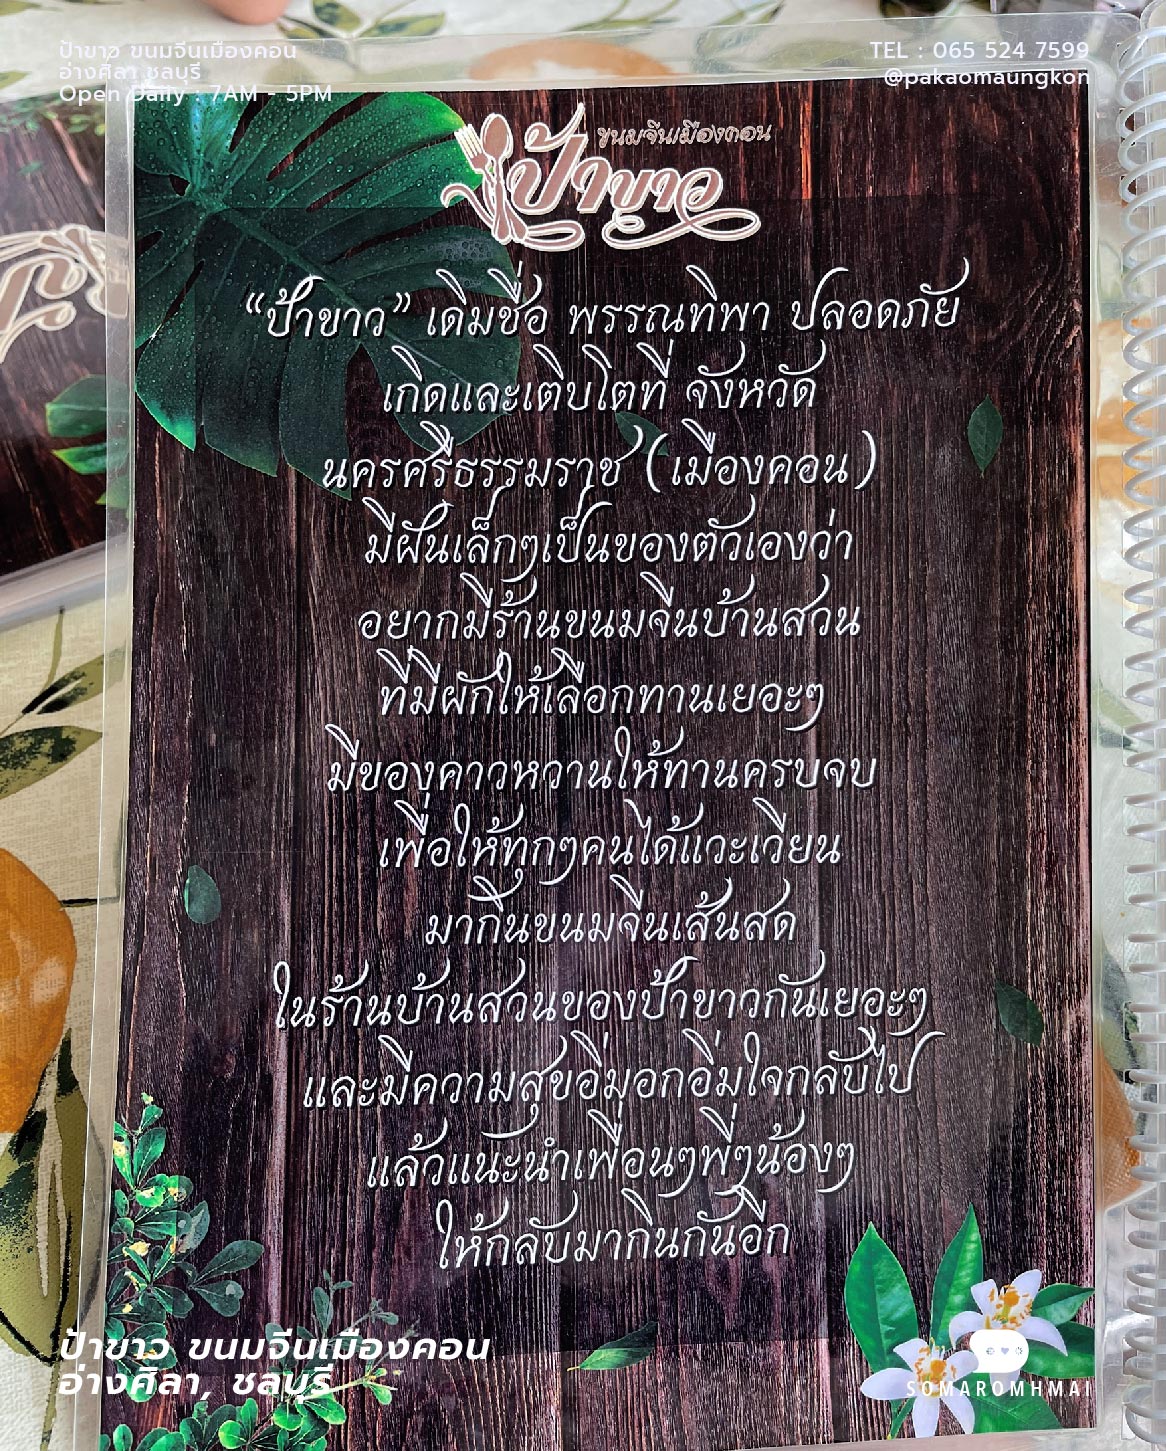 ป้าขาว ขนมจีนเมืองคอน
อ่างศิลา ชลบุรี
Open Daily : 7AM - 5PM
TEL : 065 524 7599
@pakaomaungkon
ขนมจีนเมืองคอน
ป้าขาว
“ป้าขาว” เดิมชื่อ พรรณทิพา ปลอดภัย
เกิดและเติบโตที่ จังหวัด
นครศรีธรรมราช (เมืองคอน)
มีฝันเล็กๆเป็นของตัวเองว่า
อยากมีร้านขนมจีนบ้านสวน
ที่มีผักให้เลือกทานเยอะๆ
มีของคาวหวานให้ทานครบจบ
เพื่อให้ทุกๆคนได้แวะเวียน
มากินขนมจีนเส้นสด
ในร้านบ้านสวนของป้าขาวกันเยอะๆ
และมีความสุขอิ่มอกอิ่มใจกลับไป
แล้วแนะนำเพื่อนๆพี่ๆน้องๆ
ให้กลับมากินกันอีก
ป้าขาว ขนมจีนเมืองคอน
อ่างศิลา, ชลบุรี
SOMAROMHMAI